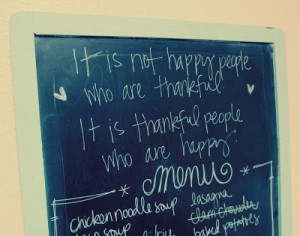 It is not happy people
who are thankful
It is thankful people
who are happy.
menu
chicken noodle soup lasagna
soup clam chowder
baked potatoes